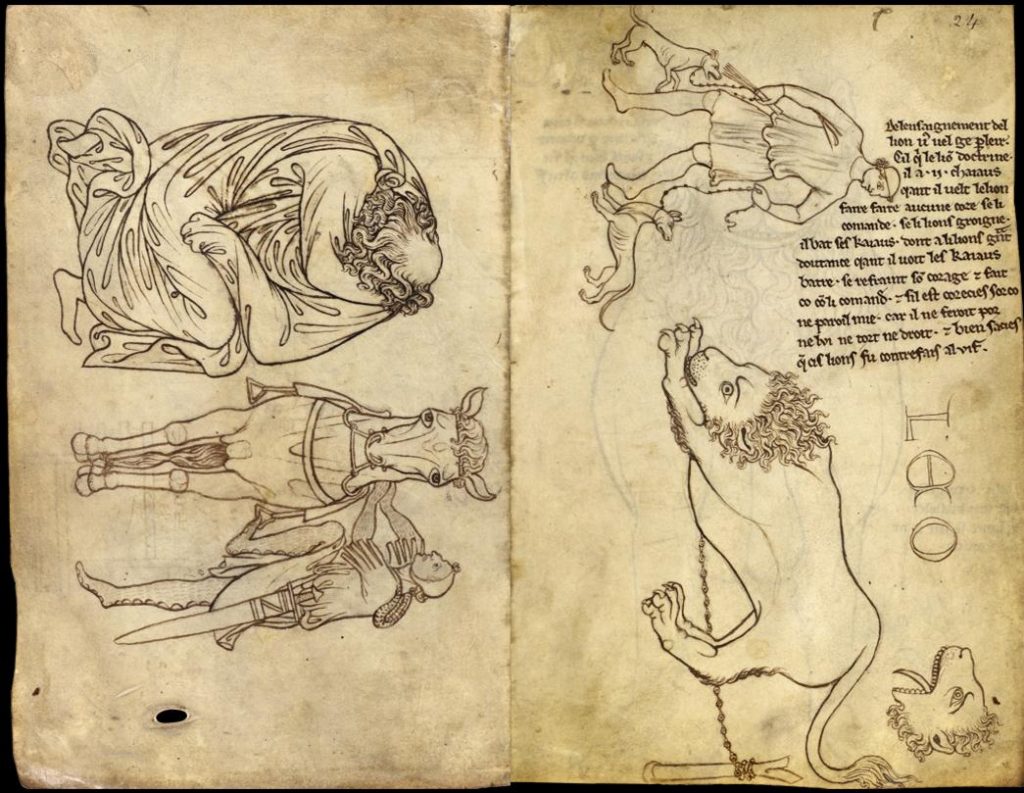 24
De lensaignement del
lion v̄ vel ge pleir.
Cil q̄ le liō doctrine.
il a · ii · chaiaus
qant il velt le lion
faire faire aucune coze se li
comande · se li lions groigne ·
il bat ses kaiaus · dont a li lions gn̄t
doutance qant il voit les kaiaus
batre · se refraint sō corage ⁊ fait
co cō li comand · ⁊ sil est corecies sor co
ne paroil mie · car il ne feroit por
nelui ne tort ne droit · ⁊ bien sacies
q̄ cis lions fu contrefais al vif ·
LEO